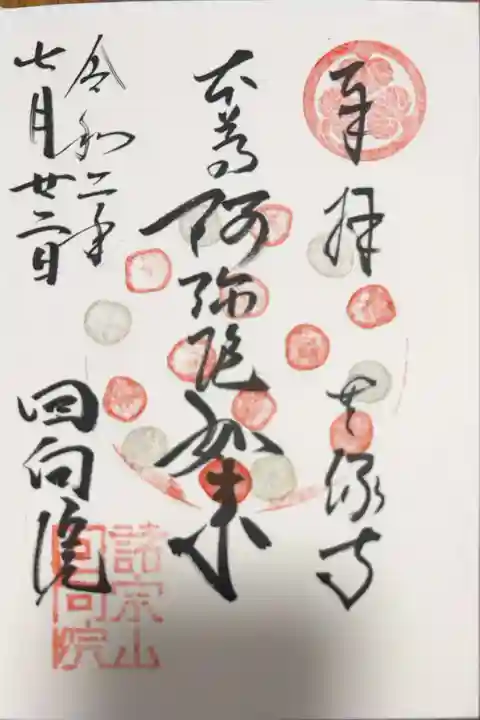 奉拝 無縁寺
本尊 阿弥陀如来
令和二年
七月廿二日
回向院
諸宗山
回向院